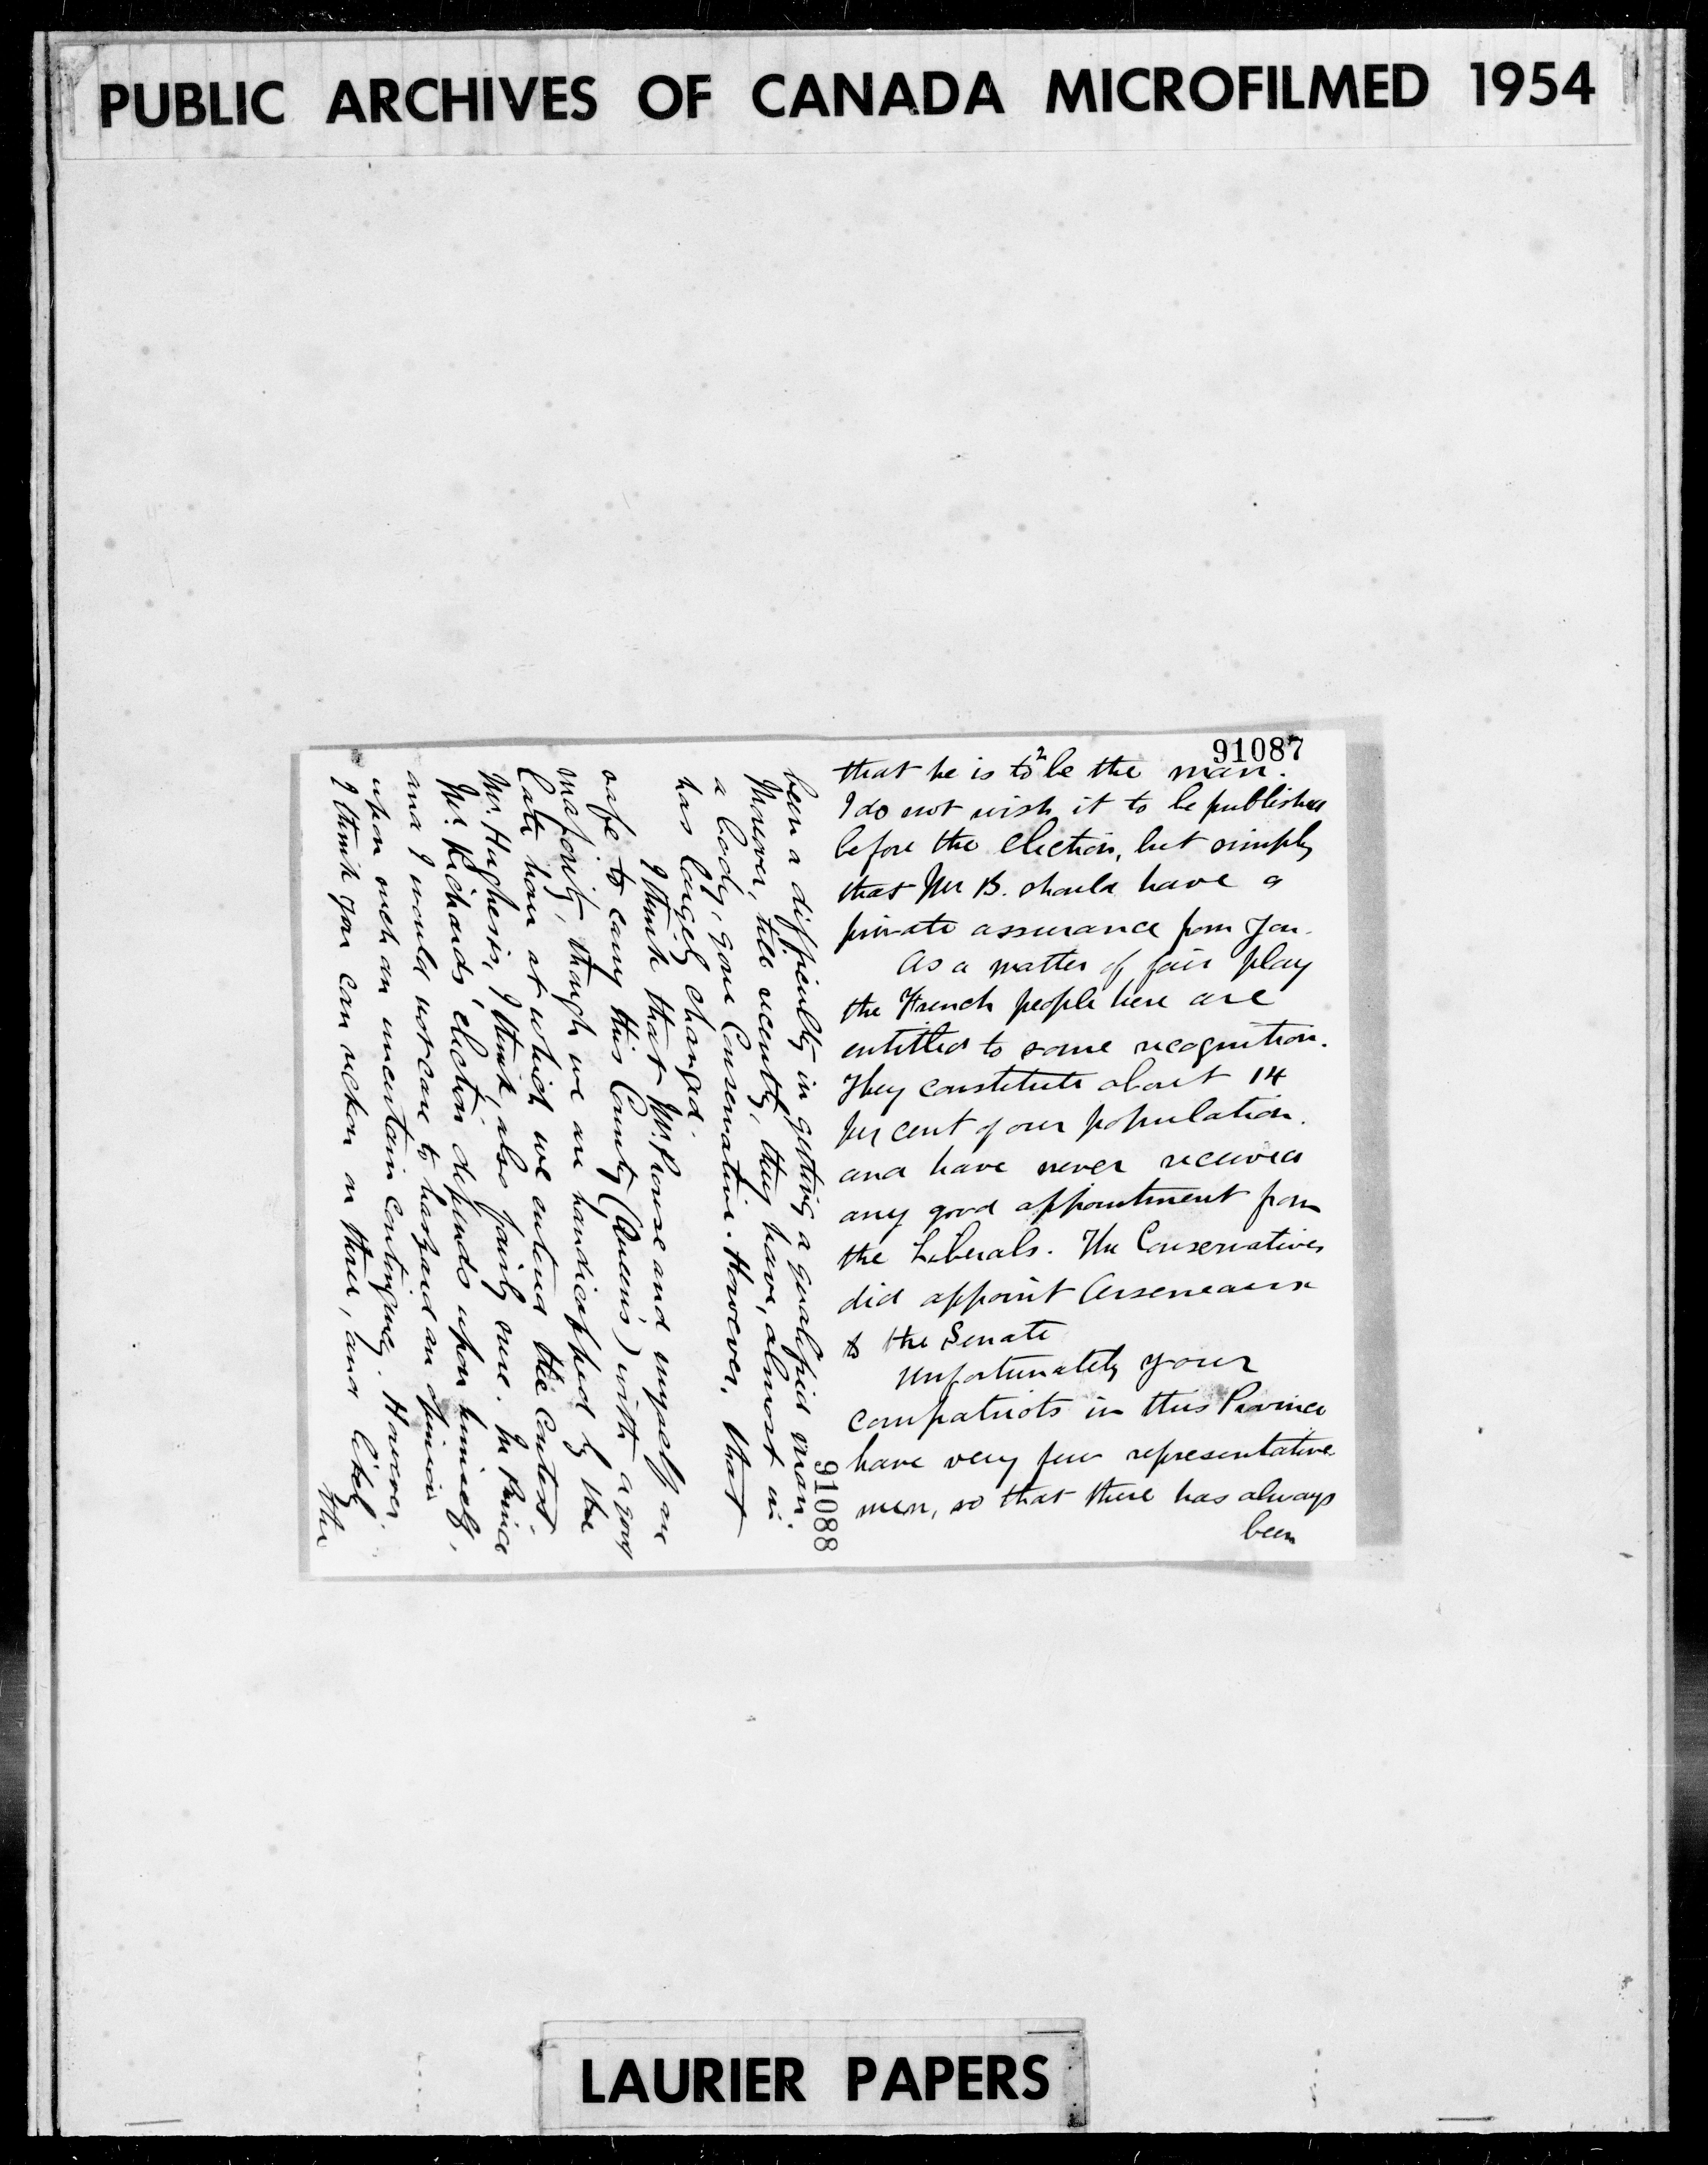 PUBLIC ARCHIVES OF CANADA MICROFILMED 1954
91087
2
that he is to be the man.
I do not wish it to be published
before the election, but simply
that Mr B. should have a
private assurance from you.
As a matter of fair play
the French people here are
entitled to some recognition.
They constitute about 14
per cent of our population.
and have never received
any good appointment from
the Liberals. The Conservatives
did appoint Arseneaux
to the Senate
Unfortunately your
compatriots in this Province
have very few representative
men, so that there has always
been
91088
been a difficulty in getting a qualified man.
Moreover, till recently, they have, almost in
a body, gone Conservative. However, that
has largely changed.
I think that Mr. Prowse and myself are
safe to carry this County (Queen's) with a good
majority, though we are handicapped by the
late hour at which we entered the contest.
Mr. Hughes is, I think, also fairly sure. In Prince
Mr. Richards' election depends upon himself,
and I would not care to hazard an opinion
upon such an uncertain contingency. However
I think you can reckon on three, and likely
the
LAURIER PAPERS